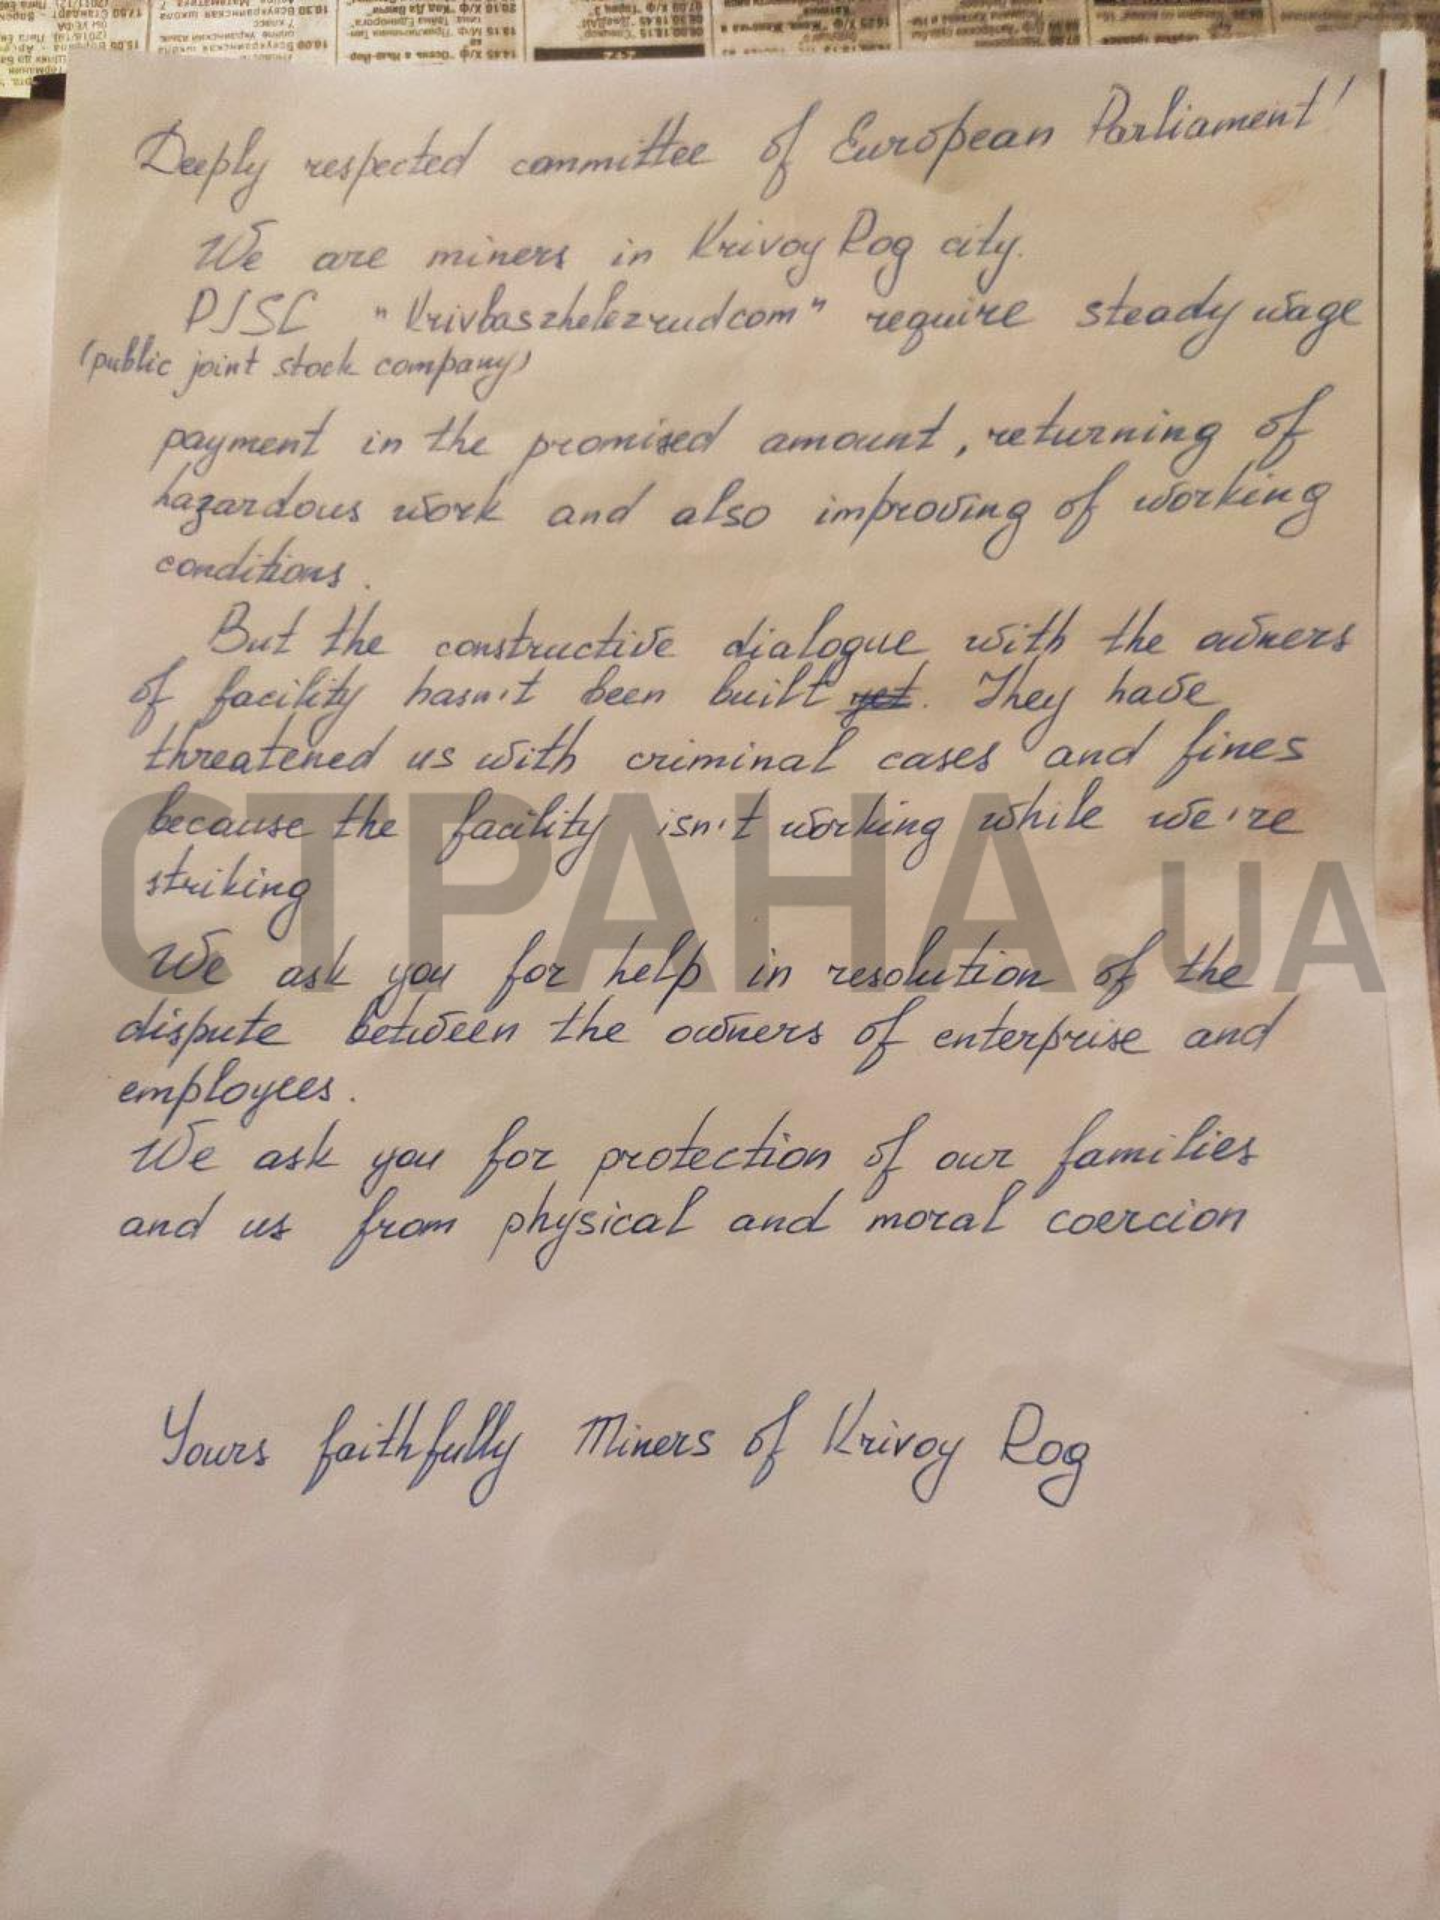 Deeply respected committee of European Parliament!
We are miners in Krivoy Rog city.
PJSC "Krivbaszhelezrudcom" require steady wage
(public joint stock company)
payment in the promised amount, returning of
hazardous work and also improving of working
conditions.
But the constructive dialogue with the owners
of facility hasn't been built yet. They have
threatened us with criminal cases and fines
because the facility isn't working while we're
striking
СТРАНА.UA
We ask you for help in resolution of the
dispute between the owners of enterprise and
employees.
We ask you for protection of our families
and us from physical and moral coercion
Yours faithfully Miners of Krivoy Rog